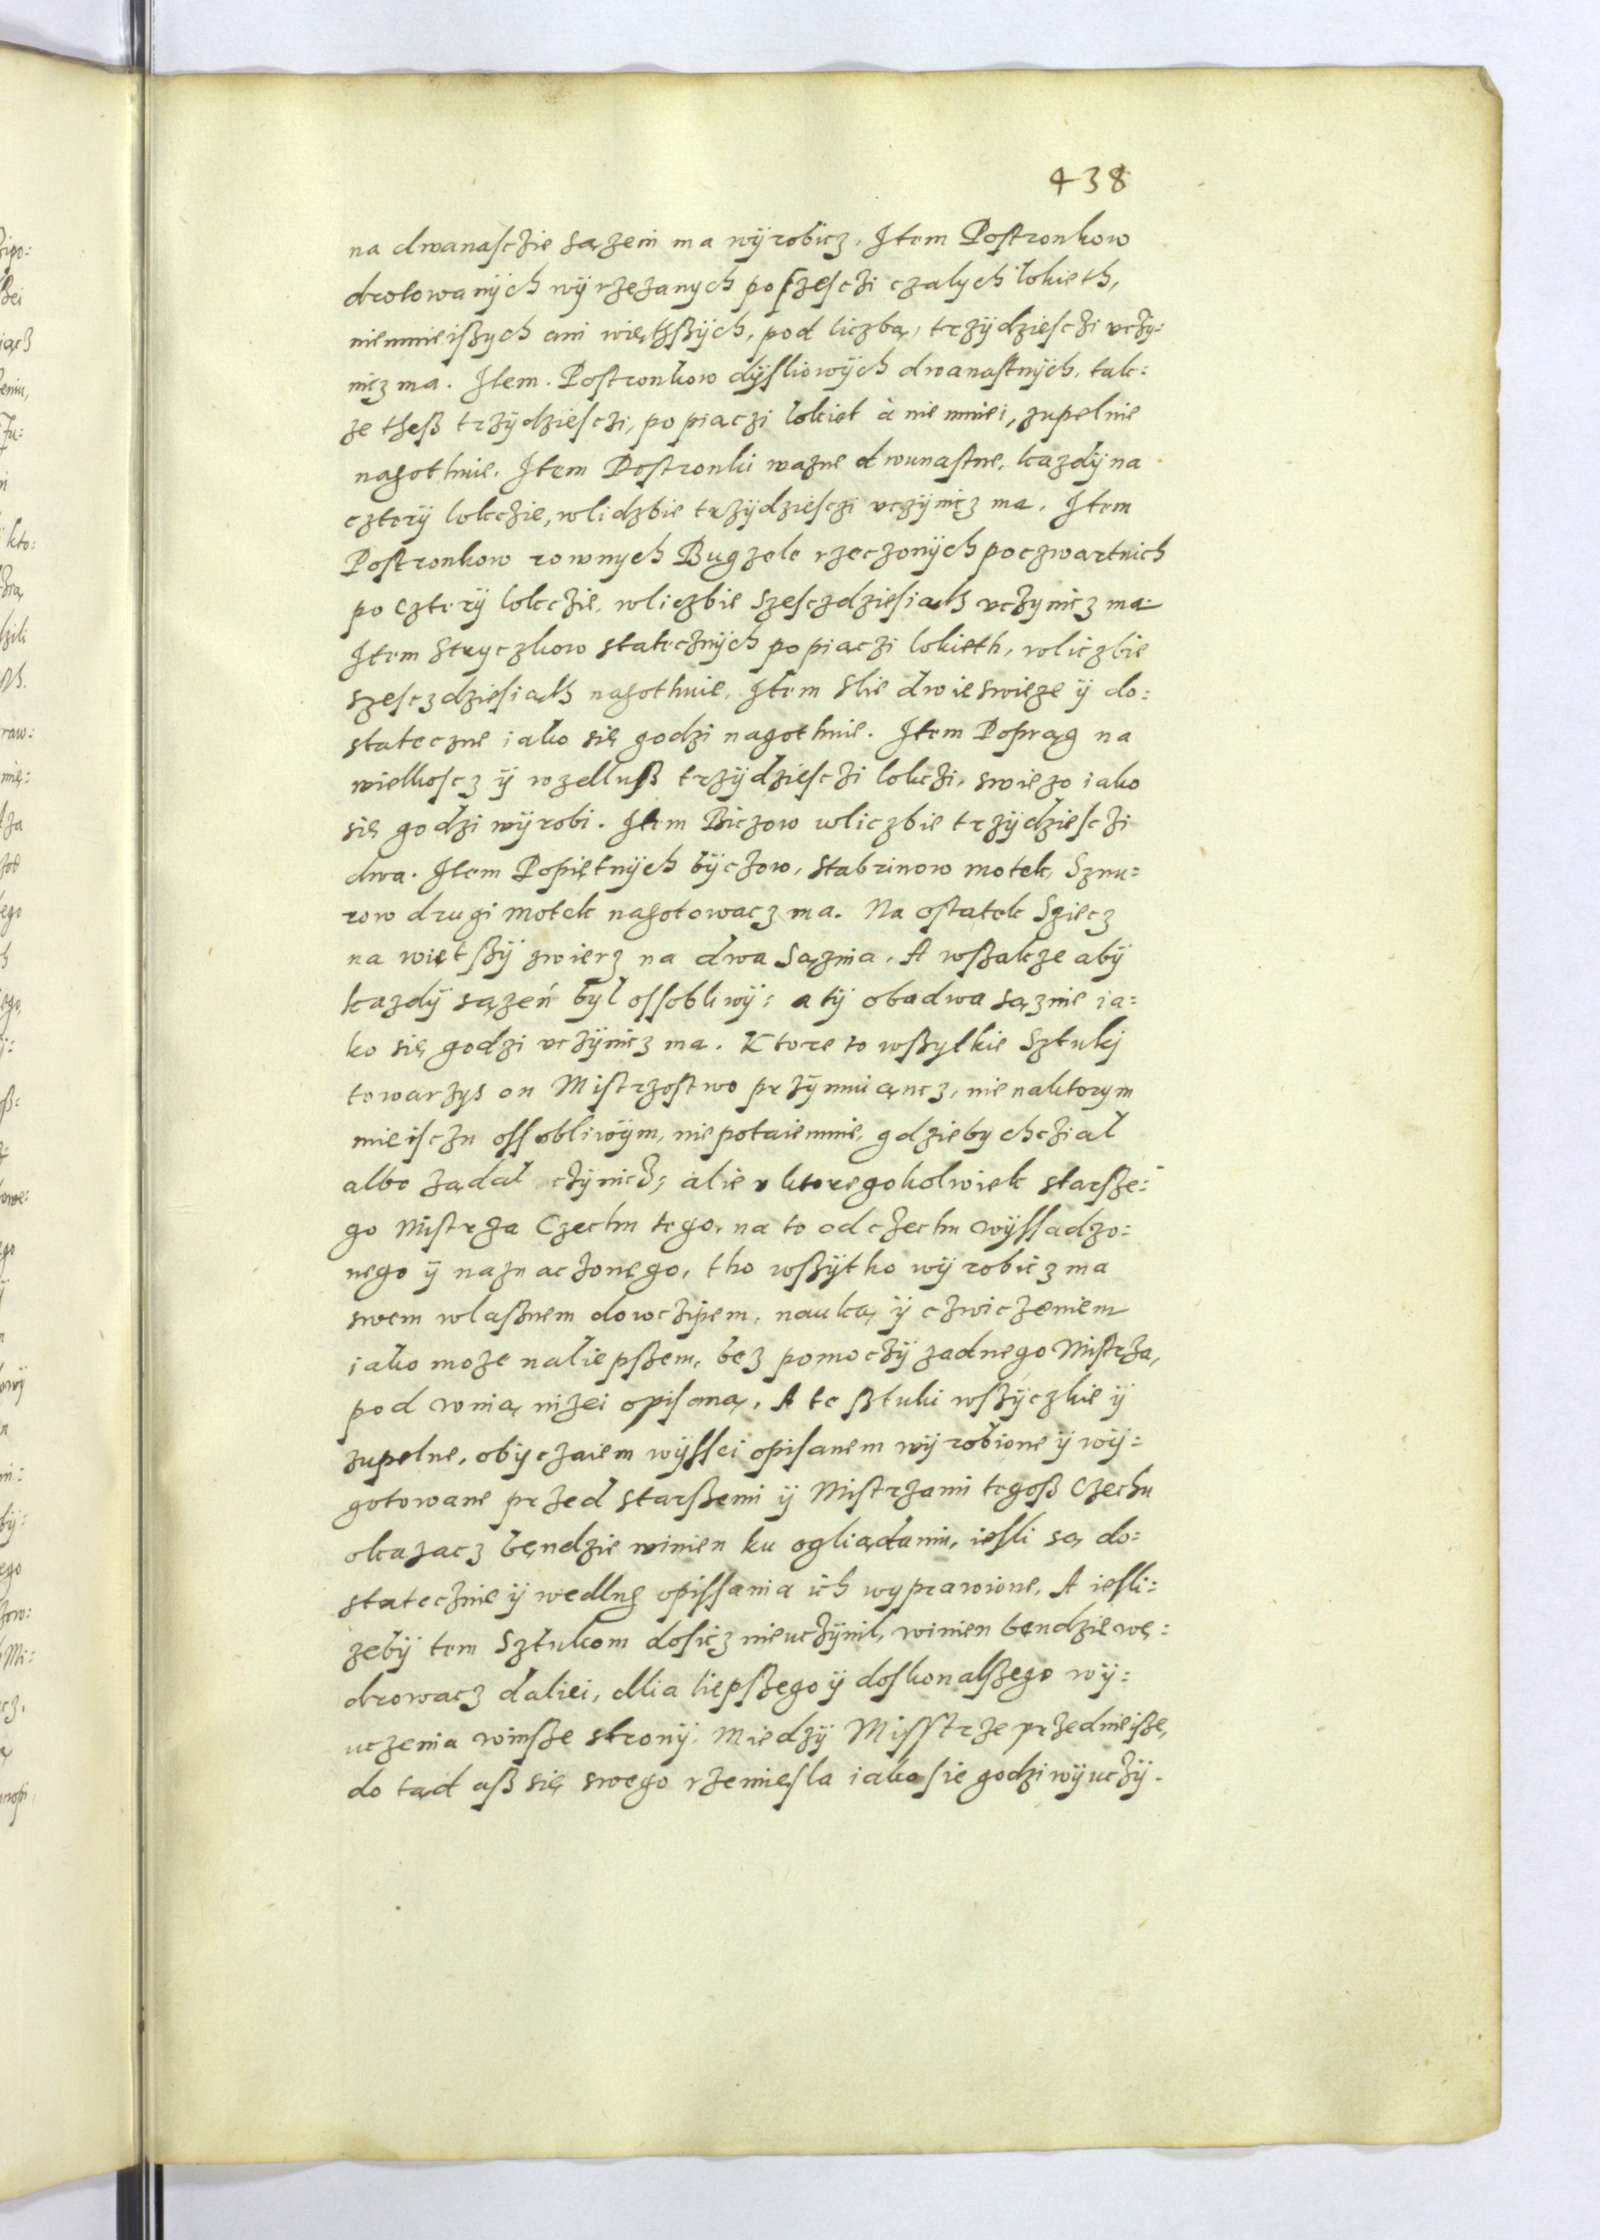 438
na dwanasczie sązein ma wÿrobicz. Item Postronkow
drotowanÿch wÿrzezanych po szesczi czalych lokieth,
niemnieißych ani więthßÿch, pod liczbą, trzÿdziesczi vczÿ:
nicz ma. Item. Postronkow dÿsliowÿch dwanastnÿch, tak:
ze theß trzÿdziesczi, po piaczi lokiet à nie mniei, zupelnie
nagothuie. Item Postronki wazne dwunastne, kazdÿ na
cztorÿ lokczie, wlidzbie trzÿdziesczi vczÿnicz ma. Item
Postronkow rownych Bugzele rzeczonÿch poczwartnich
po czterÿ lokczie, wliczbie szesczdziesiath vczynicz ma
Item Stryczkow statecznÿch po piaczi lokieth, wliczbie
szesczdziesiath nagothuie, Item slie dwie swieze ÿ do:
stateczne iako się godzi nagothuie. Item Popręg na
wielkoscz ÿ wzdluß trzÿdziesczi lokczi, swiezo iako
się godzi wÿrobi. Item Biczow wliczbie trzÿdziesczi
dwa. Item Popiętnÿch bÿczow, stabrinow motek, Sznu:
row drugi motek nagotowacz ma. Na ostatek Sziecz
na wietßÿ zwierz na dwa Sąznia, A wßakze abÿ
kazdÿ sązeń bÿl ossobliwÿ: a tÿ obadwa sąznie ia:
ko się godzi vczÿnicz ma. Ktore to wßytkie Sztukj
towarzys on Mistrzostwo przÿmuiąncz, nie naktorym
mieisczu ossobliwÿm, nie potaiemnie, gdzieby chcział
albo ządał czÿnicz; alie v ktoregokolwiek starße:
go Mistrza Czechu tego, na to od czechu wÿssadzo:
nego ÿ naznaczonego, tho wßÿtko wÿrobicz ma
swem wlaßnem dowczipem, nauką ÿ czwiczeniem
iako moze naliepßem, bez pomoczÿ zadnego Mistrza,
pod winą nizei opisaną. A te ßtuki wßÿczkie ÿ
zupelne, obÿczaiem wÿssei opisanem wÿrobione ÿ wÿ:
gotowane przed starßemi ÿ Mistrzami tegoß Czechu
okazacz bęndzie winien ku ogliądaniu, iesli są do:
statecznie ÿ wedlug opissania ich wyprawione, A iesli:
zebÿ tem Sztukom dosicz nieuczÿnil, winien bendzie wę:
drowacz daliei, dlia liepßego ÿ doskonalßego wÿ:
uczenia winße stronÿ. Miedzÿ Misstrze przednieiße,
do tąd aß się swego rzemięsla iako sie godzi wÿuczÿ.